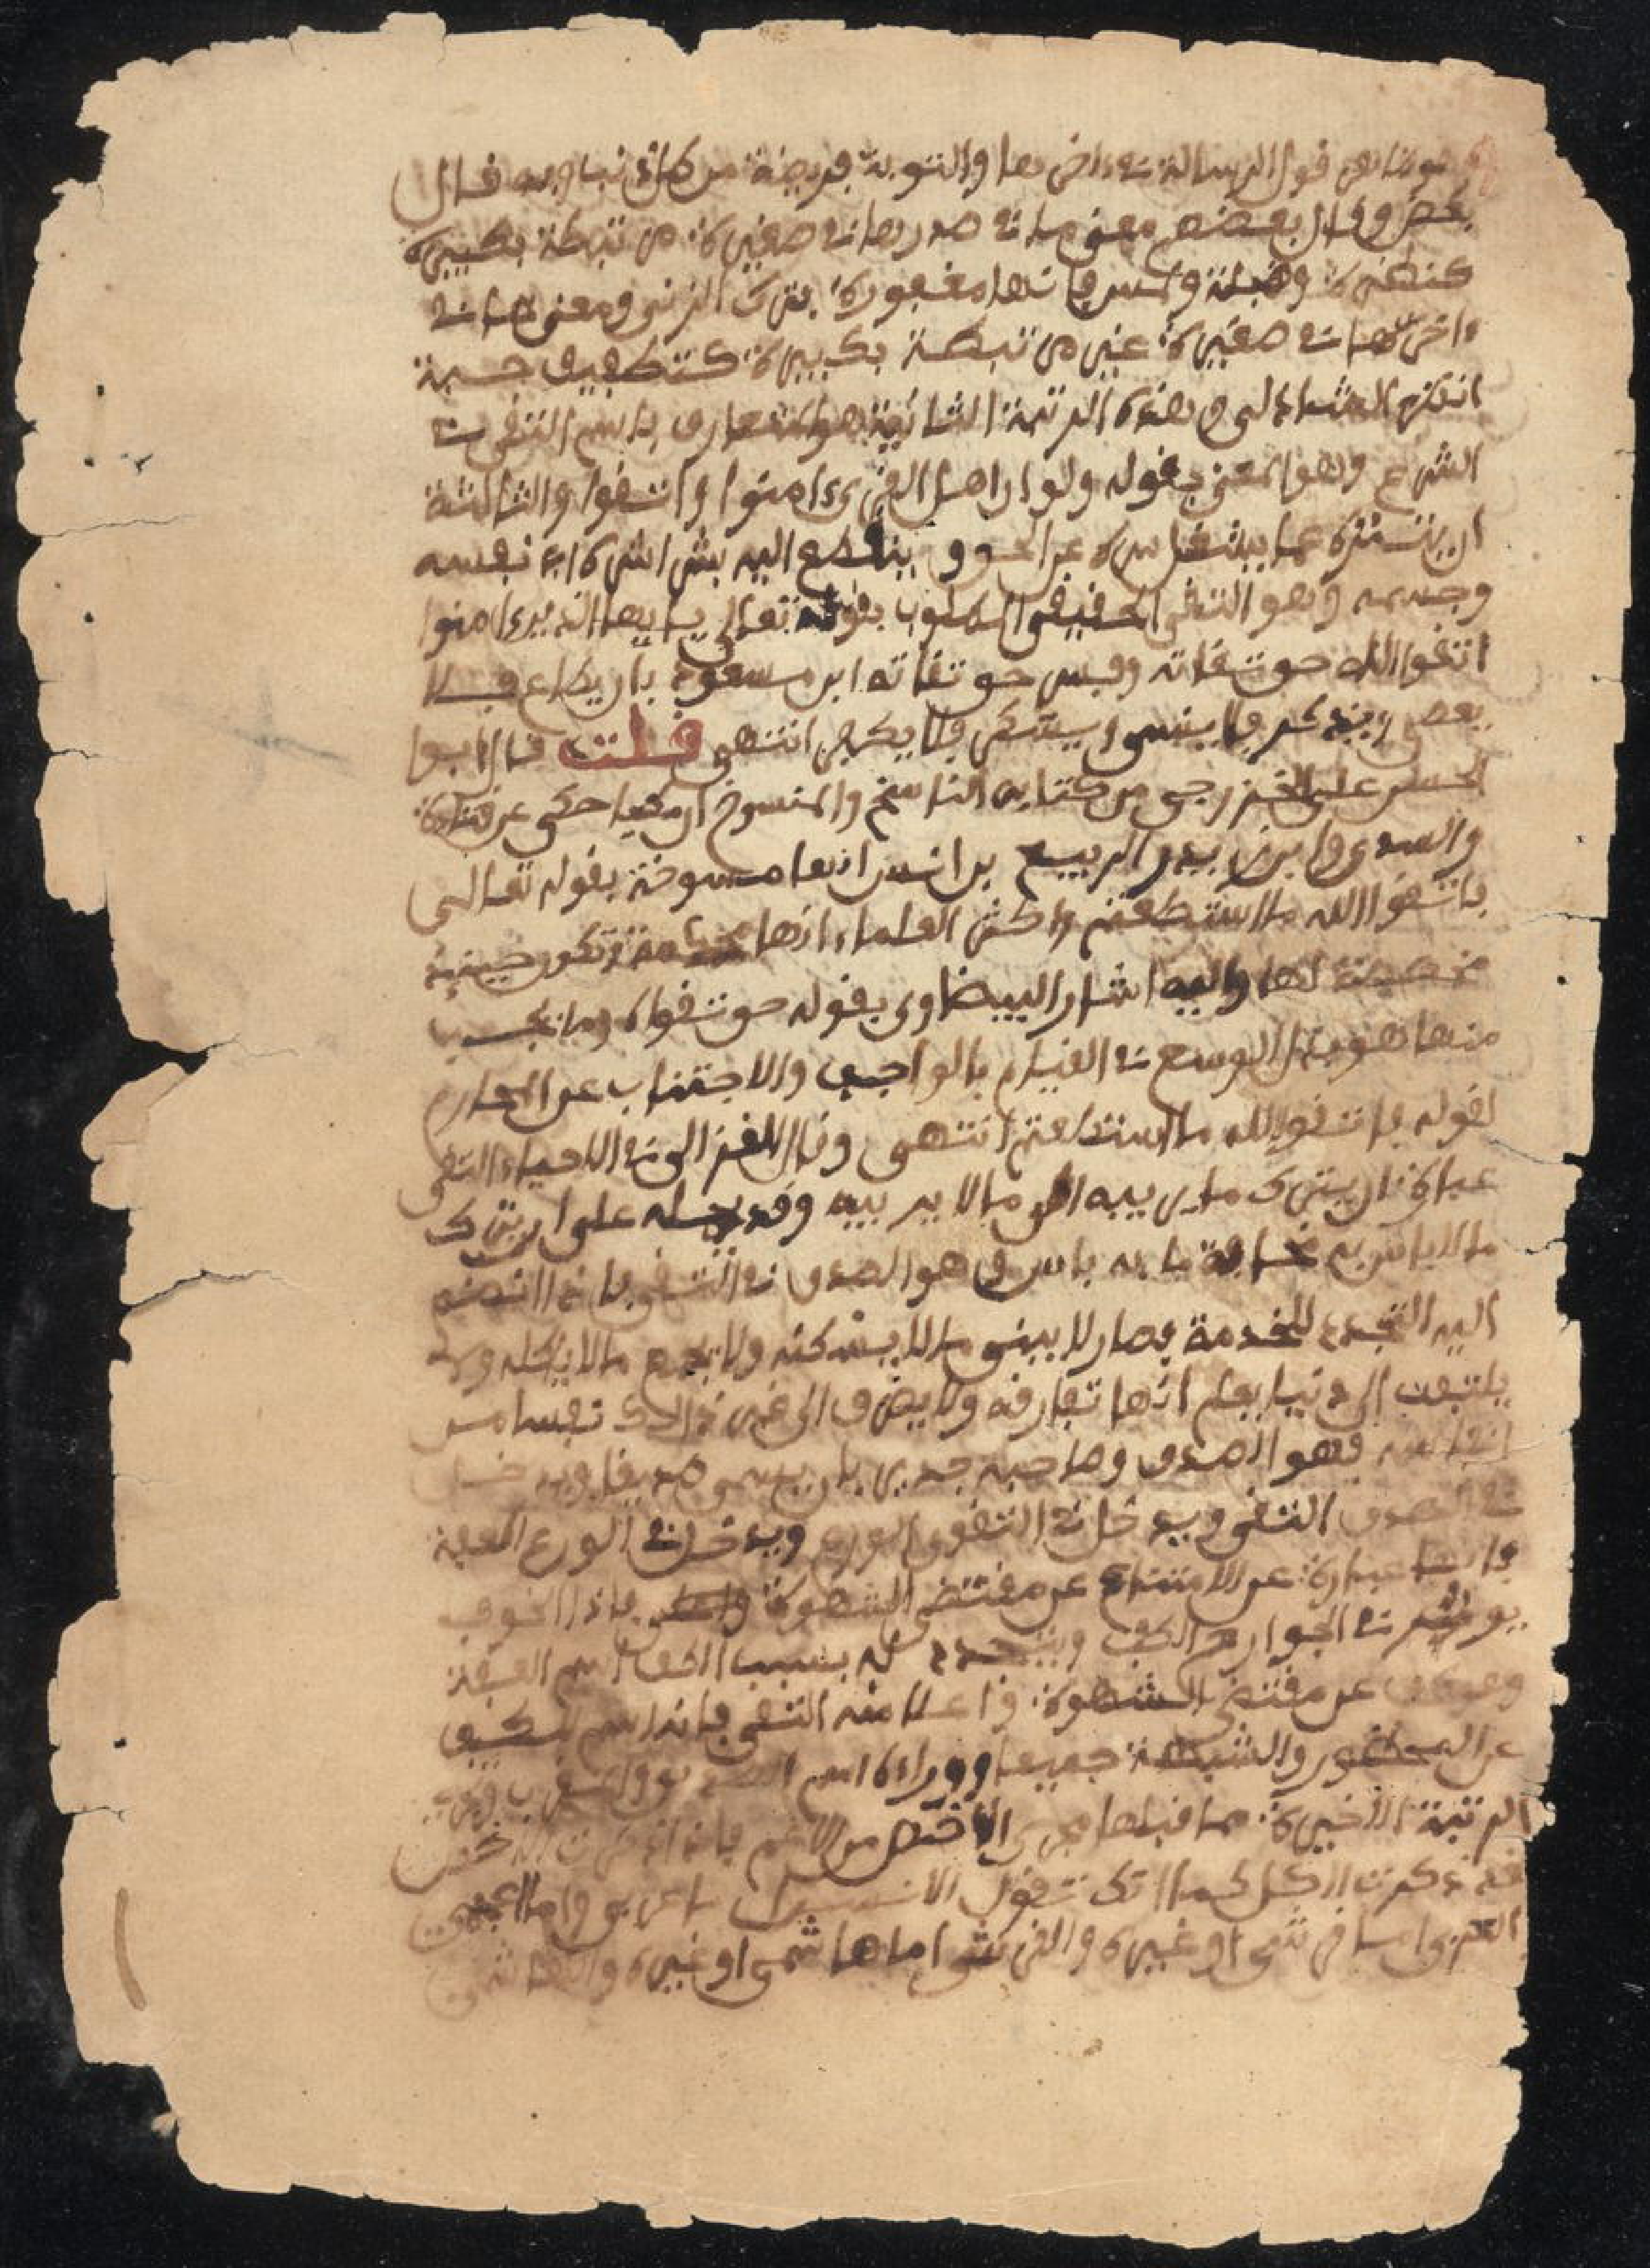 قول الرسالة في ءاخرها والتوبة فريضة من كل ذنب وبه قال
بعض وقال بعضهم معنى ما في صدرها في صغيرة مرتبطة بكبيرة
كنظرة وقبلة ولمس فإنها مغفورة بترك الزنى ومعنى ما في
ءاخرها في صغيرة غير مرتبطة بكبيرة كتطفيف حبة
انظر الشاذلي وهذه المرتبة الثانية هو المتعارف باسم التقى في
الشرع وهو المعنى بقوله ولو ان اهل القرى ءامنوا واتقوا والثالثة
ان يتنزه عما يشغل سره عن الحق وينقطع اليه بشراشره اي نفسه
وجسمه وهو التقى الحقيقي المطلوب بقوله تعالى يايها الذين ءامنوا
اتقوا الله حق تقاته وفسر حق تقاته ابن مسعود بان يطاع فلا
يعصى ويذكر فلا ينسى ويشكر فلا يكفر انتهى قلت قال ابوا
الحسن علي الخزرجي من كتابه الناسخ والمنسوخ ان مكيا حكى عن قتادة
والسدي وابن زيد والربيع بن انس انها منسوخة بقوله تعالى
فاتقوا الله ما استطعتم واكثر العلماء انها محكمة وتكون حينئذ
مخصصة لها واليه اشار البيضاوي بقوله حق تقواه وما يجب
منها هو بذل الوسع في القيام بالواجب والاجتناب عن المحارم
لقوله فاتقوا الله ما استطعتم انتهى وقال الغزالي في الاحياء التقى
عبارة ان يترك ما يريبه الى ما لا يريبه وقد يحمله على ان يترك
ما لا باس به مخافة ما به باس وهو الصدق في التقى فاذا انضم
اليه التجرد للخدمة فصار لا يبني ما لا يسكنه ولا يجمع ما لا ياكله ولا
يلتفت الى دنيا يعلم انها تفارقه ولا يصرف الى غير ذالك نفسا من
انفاسه فهو الصدق وصاحبه جدير بان يسمى صديقا ويدخل
في الصدق التقى ويدخل في التقوى الورع ويدخل في الورع العفة
فانها عبارة عن الامتناع عن مقتضى الشهوة فاذا الخوف
يوثر في الجوارح الكف ويتجدد له بسبب الكف اسم العفة
وهو كف عن مقتضى الشهوة واعلا منه التقى فانه اسم للكف
عن المحظور والشبهة جميعا ووراءه اسم الصديق والمقرب وتجري
المرتبة الاخيرة مما قبلها مجرى الاخص من الاعم فاذا ذكرت الاخص
فقد ذكرت الكل كما انك تقول الانسان اما عربي واما عجمي
والعربي اما قرشي او غيره والقرشي اما هاشمي او غيره والهاشمي